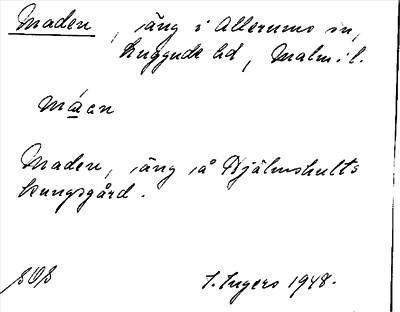 Maden, äng i Allerums sn,
Luggude hd, Malm. l.
Måen
Maden, äng å Hjälmshults
kungsgård.
SOS I. Ingers 1948.